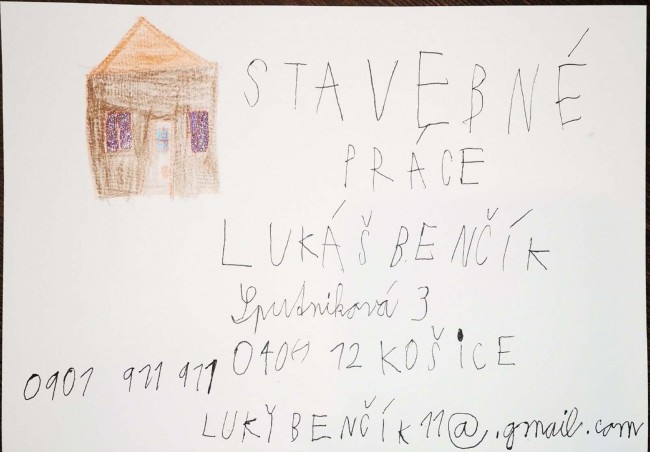 STAVEBNÉ
PRÁCE
LUKÁŠ BENČÍK
Sputniková 3
040 12 KOŠICE
0901 911 911
LUKYBENČÍK11@.gmail.com